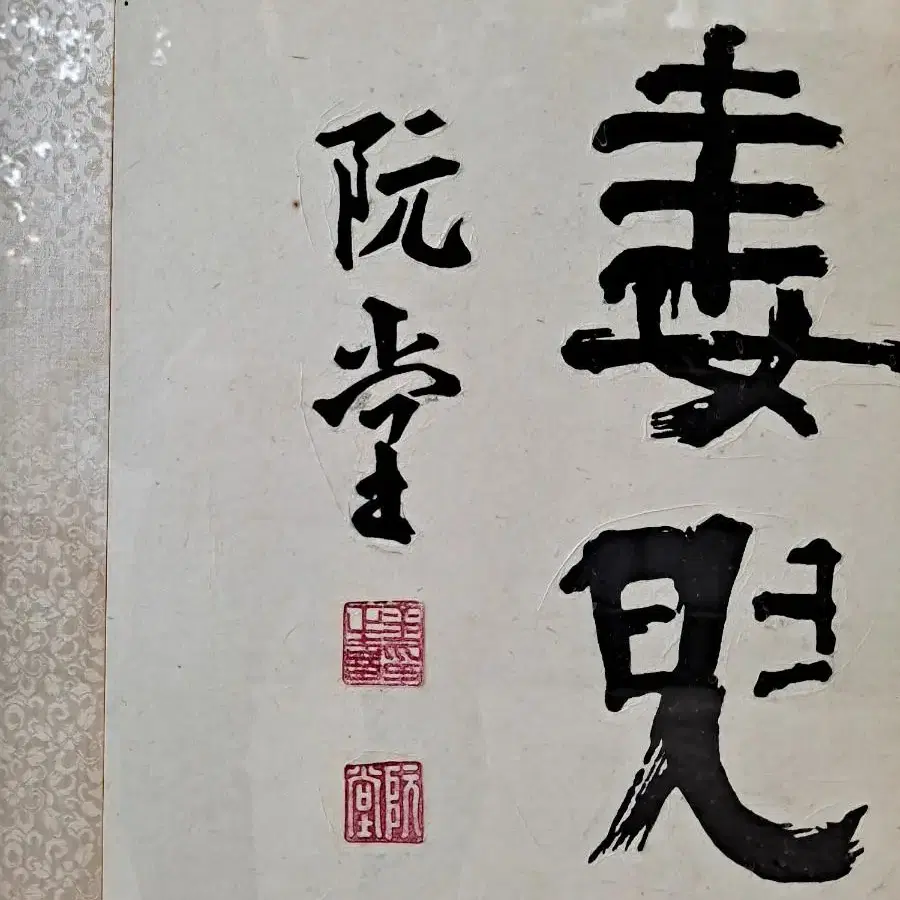 妻兒
阮堂
阮堂